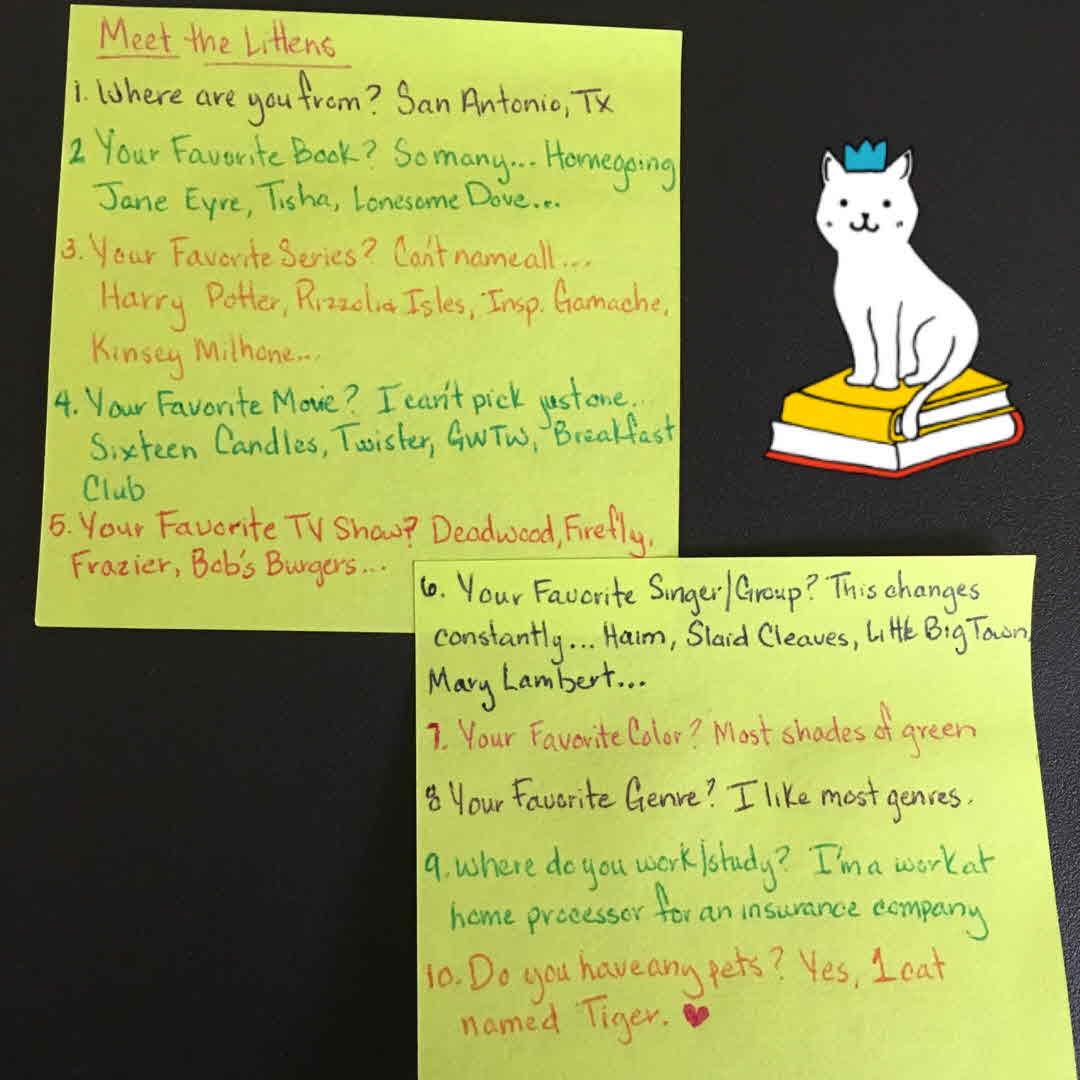 Meet the Littens
1. Where are you from? San Antonio, Tx
2 Your Favorite Book? So many... Homegoing
Jane Eyre, Tisha, Lonesome Dove...
3. Your Favorite Series? Can't name all...
Harry Potter, Rizzoli & Isles, Insp. Gamache,
Kinsey Milhone...
4. Your Favorite Movie? I can't pick just one..
Sixteen Candles, Twister, GWTW, Breakfast
Club
5. Your Favorite TV Show? Deadwood, Firefly,
Frazier, Bob's Burgers...
6. Your Favorite Singer/Group? This changes
constantly... Haim, Slaid Cleaves, Little Big Town,
Mary Lambert...
7. Your Favorite Color? Most shades of green
8 Your Favorite Genre? I like most genres.
9. Where do you work/study? I'm a work at
home processor for an insurance company
10. Do you have any pets? Yes, 1 cat
named Tiger. ♥